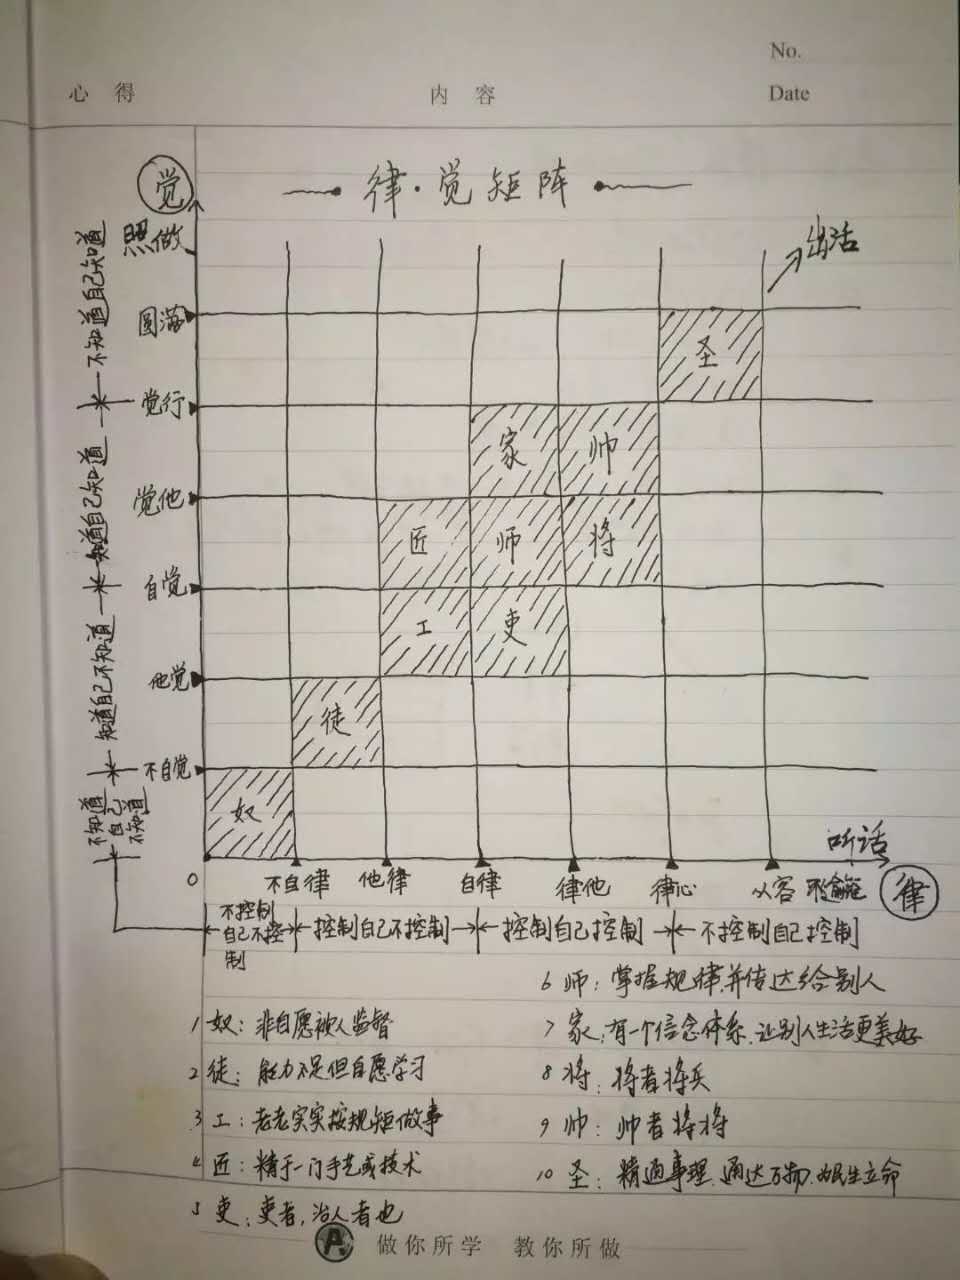 No.
心 得
内 容
Date
觉
律·觉矩阵
照做
出活
圆满
圣
觉行
家
帅
觉他
匠
师
将
自觉
工
吏
他觉
徒
不自觉
奴
不知道自己知道
知道自己知道
知道自己不知道
不知道
自己
不知道
听话
0
不自律
他律
自律
律他
律心
从容
律
不控制
自己不控
制
控制自己不控制
控制自己控制
不控制自己控制
1 奴：非自愿被人监督
2 徒：能力不足但自愿学习
3 工：老老实实按规矩做事
4 匠：精于一门手艺或技术
5 吏：吏者，治人者也
6 师：掌握规律，并传达给别人
7 家：有一个信念体系，让别人生活更美好
8 将：将者将兵
9 帅：帅者将将
10 圣：精通事理，通达万物，为民生立命
A
做你所学 教你所做